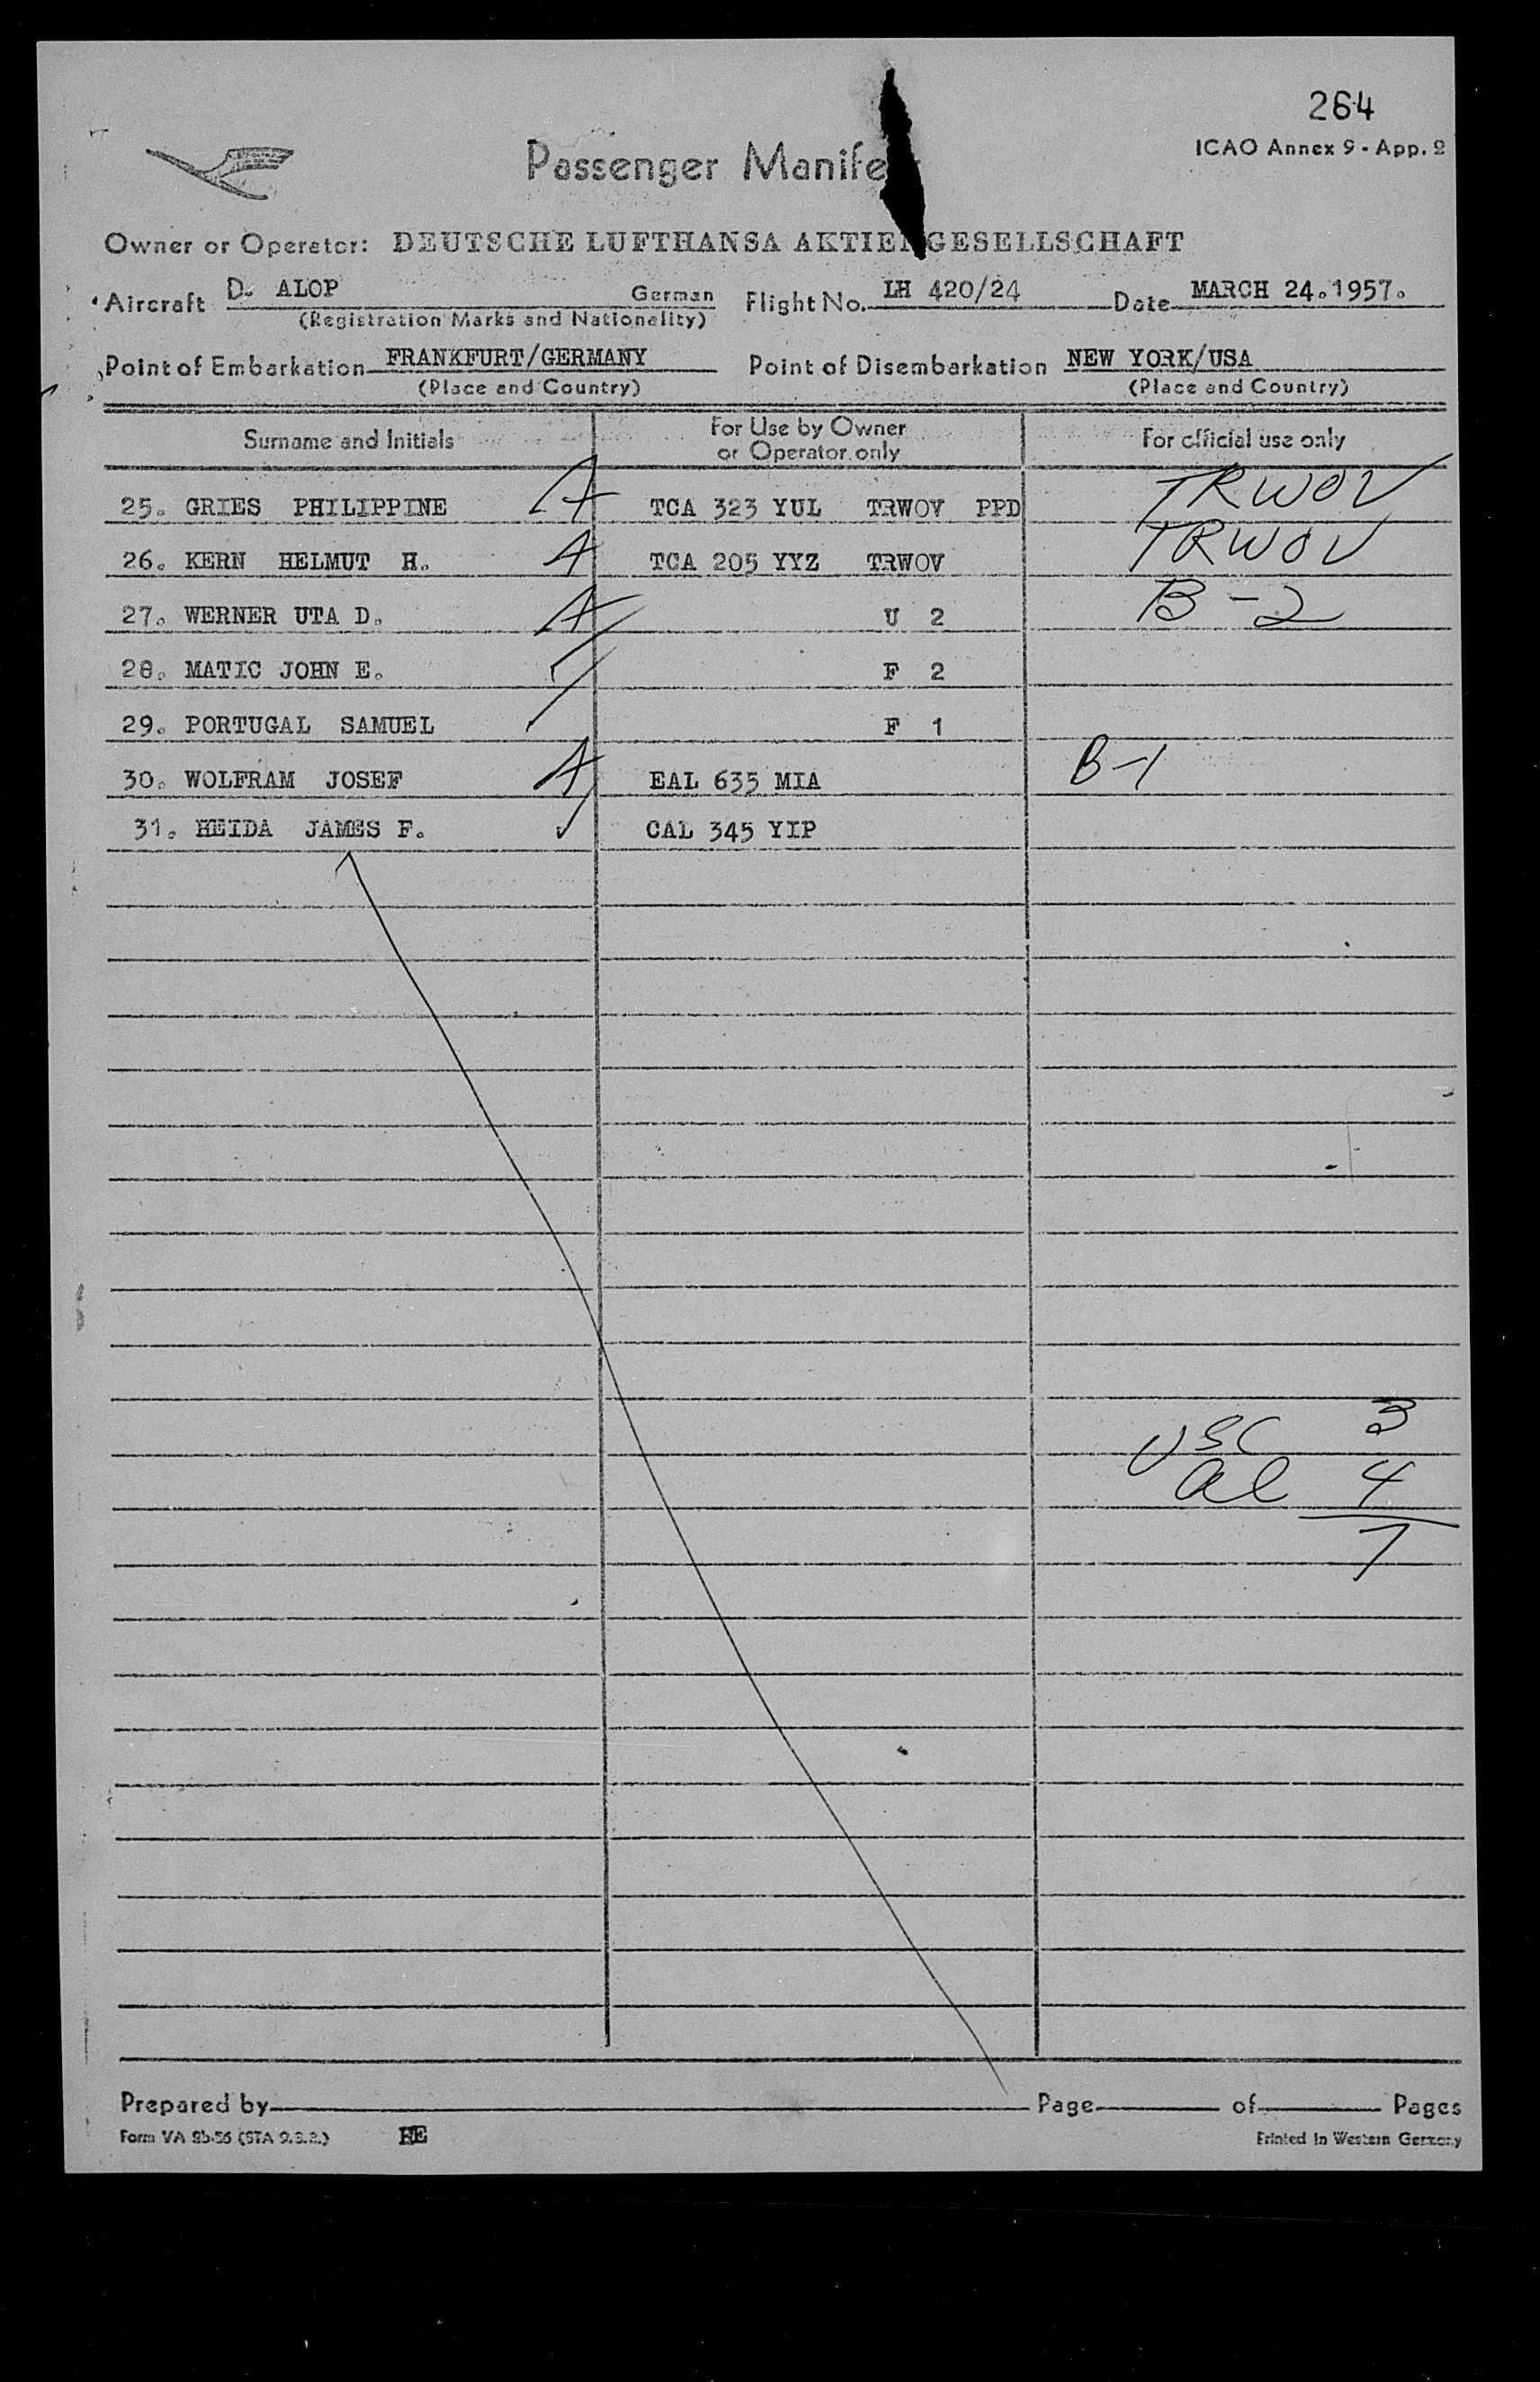 264
ICAO Annex 9 - App. 2
Passenger Manife
Owner or Operator: DEUTSCHE LUFTHANSA AKTIENGESELLSCHAFT
Aircraft D. ALOP German Flight No. LH 420/24 Date MARCH 24.1957.
(Registration Marks and Nationality)
Point of Embarkation FRANKFURT/GERMANY Point of Disembarkation NEW YORK/USA
(Place and Country) (Place and Country)
Surname and Initials For Use by Owner or Operator only For official use only
25. GRIES PHILIPPINE A TCA 323 YUL TRWOV PPD TRWOV
26. KERN HELMUT H. A TCA 205 YYZ TRWOV TRWOV
27. WERNER UTA D. A U 2 B-2
28. MATIC JOHN E. F 2
29. PORTUGAL SAMUEL F 1
30. WOLFRAM JOSEF A EAL 635 MIA B-1
31. HEIDA JAMES F. CAL 345 YIP
USC 3
al 4
7
Prepared by Page of Pages
Form VA 8b-56 (STA 9.3.2.) HE Printed in Western Germany